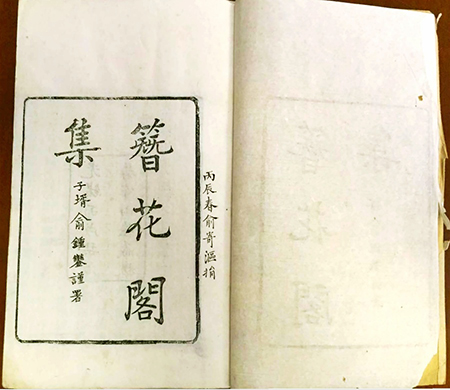 丙辰春俞寄漚捐
簪花閣
集
子壻俞鍾鑾謹署